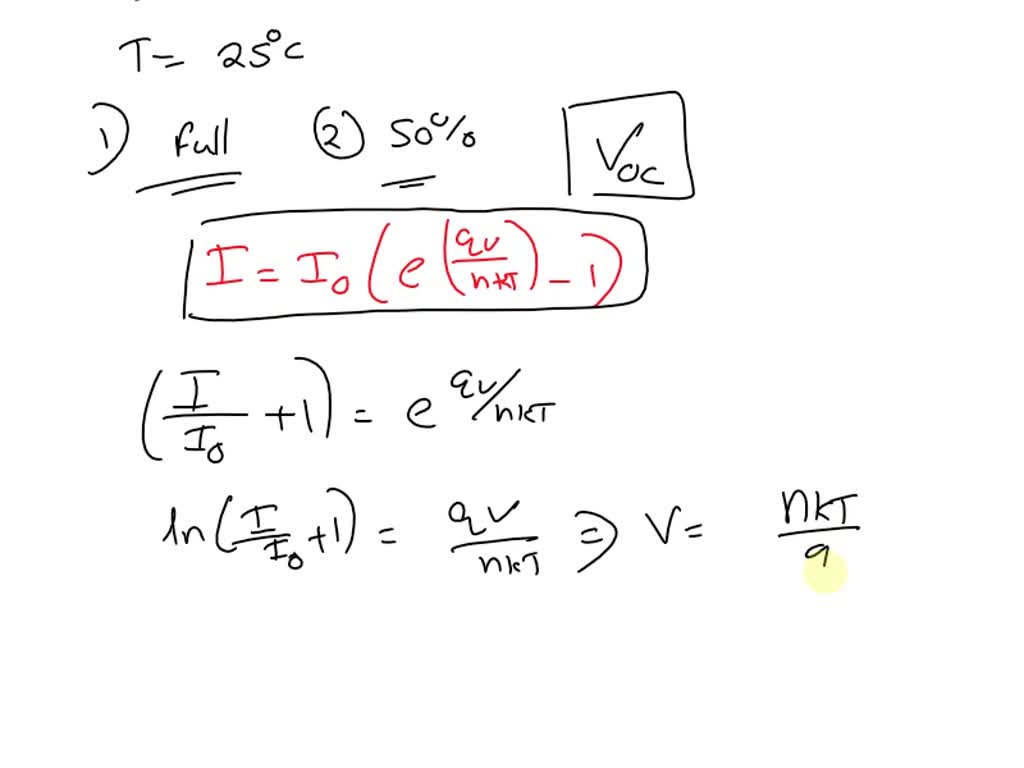 T= 25°C
1) full 2) 50% Voc
I = I0 (e^(qv/nkT) - 1)
(I/I0 +1) = e^qv/nkT
ln(I/I0 +1) = qv/nkT ⇒ V= nkT/q